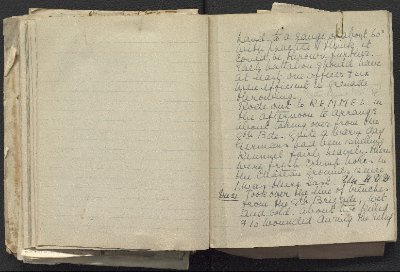 hand to a range of about 60x
with practice I think it
could be thrown further.
Each battalion should have
at least one officer & six
men efficient in grenade
throwing.
Rode out to KEMMEL in
the afternoon to arrange
about taking over from the
8th Bde. Quite a warm day
Germans had been shelling
Kemmel fairly heavily. There
were fresh crump holes in
the Chateau grounds since
I was there last
Took over the line of trenches
from the 8th Brigade, wet
and cold. about killed
& 10 wounded during the relief